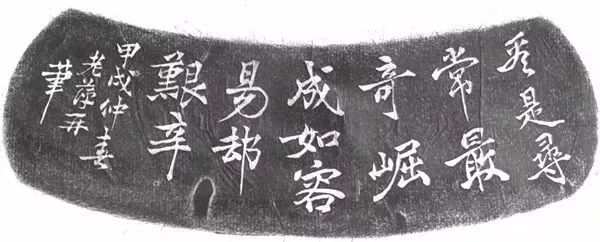 看是尋
常最
奇崛
成如容
易却
艱辛
甲戌仲
老